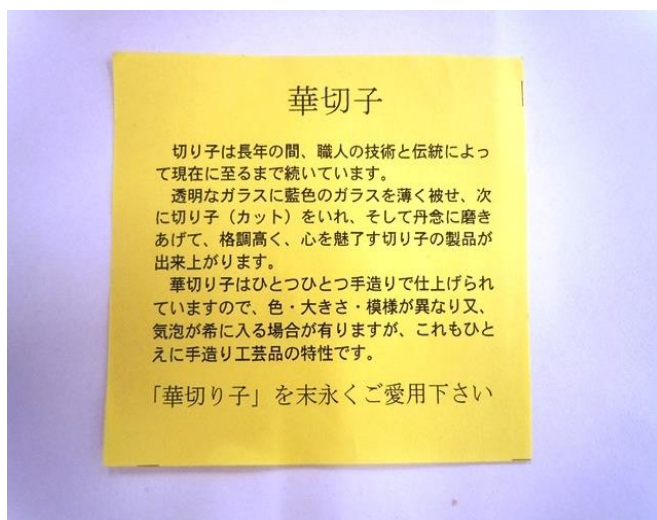 華切子
切り子は長年の間、職人の技術と伝統によっ
て現在に至るまで続いています。
透明なガラスに藍色のガラスを薄く被せ、次
に切り子（カット）をいれ、そして丹念に磨き
あげて、格調高く、心を魅了す切り子の製品が
出来上がります。
華切り子はひとつひとつ手造りで仕上げられ
ていますので、色・大きさ・模様が異なり又、
気泡が希に入る場合が有りますが、これもひと
えに手造り工芸品の特性です。
「華切り子」を末永くご愛用下さい